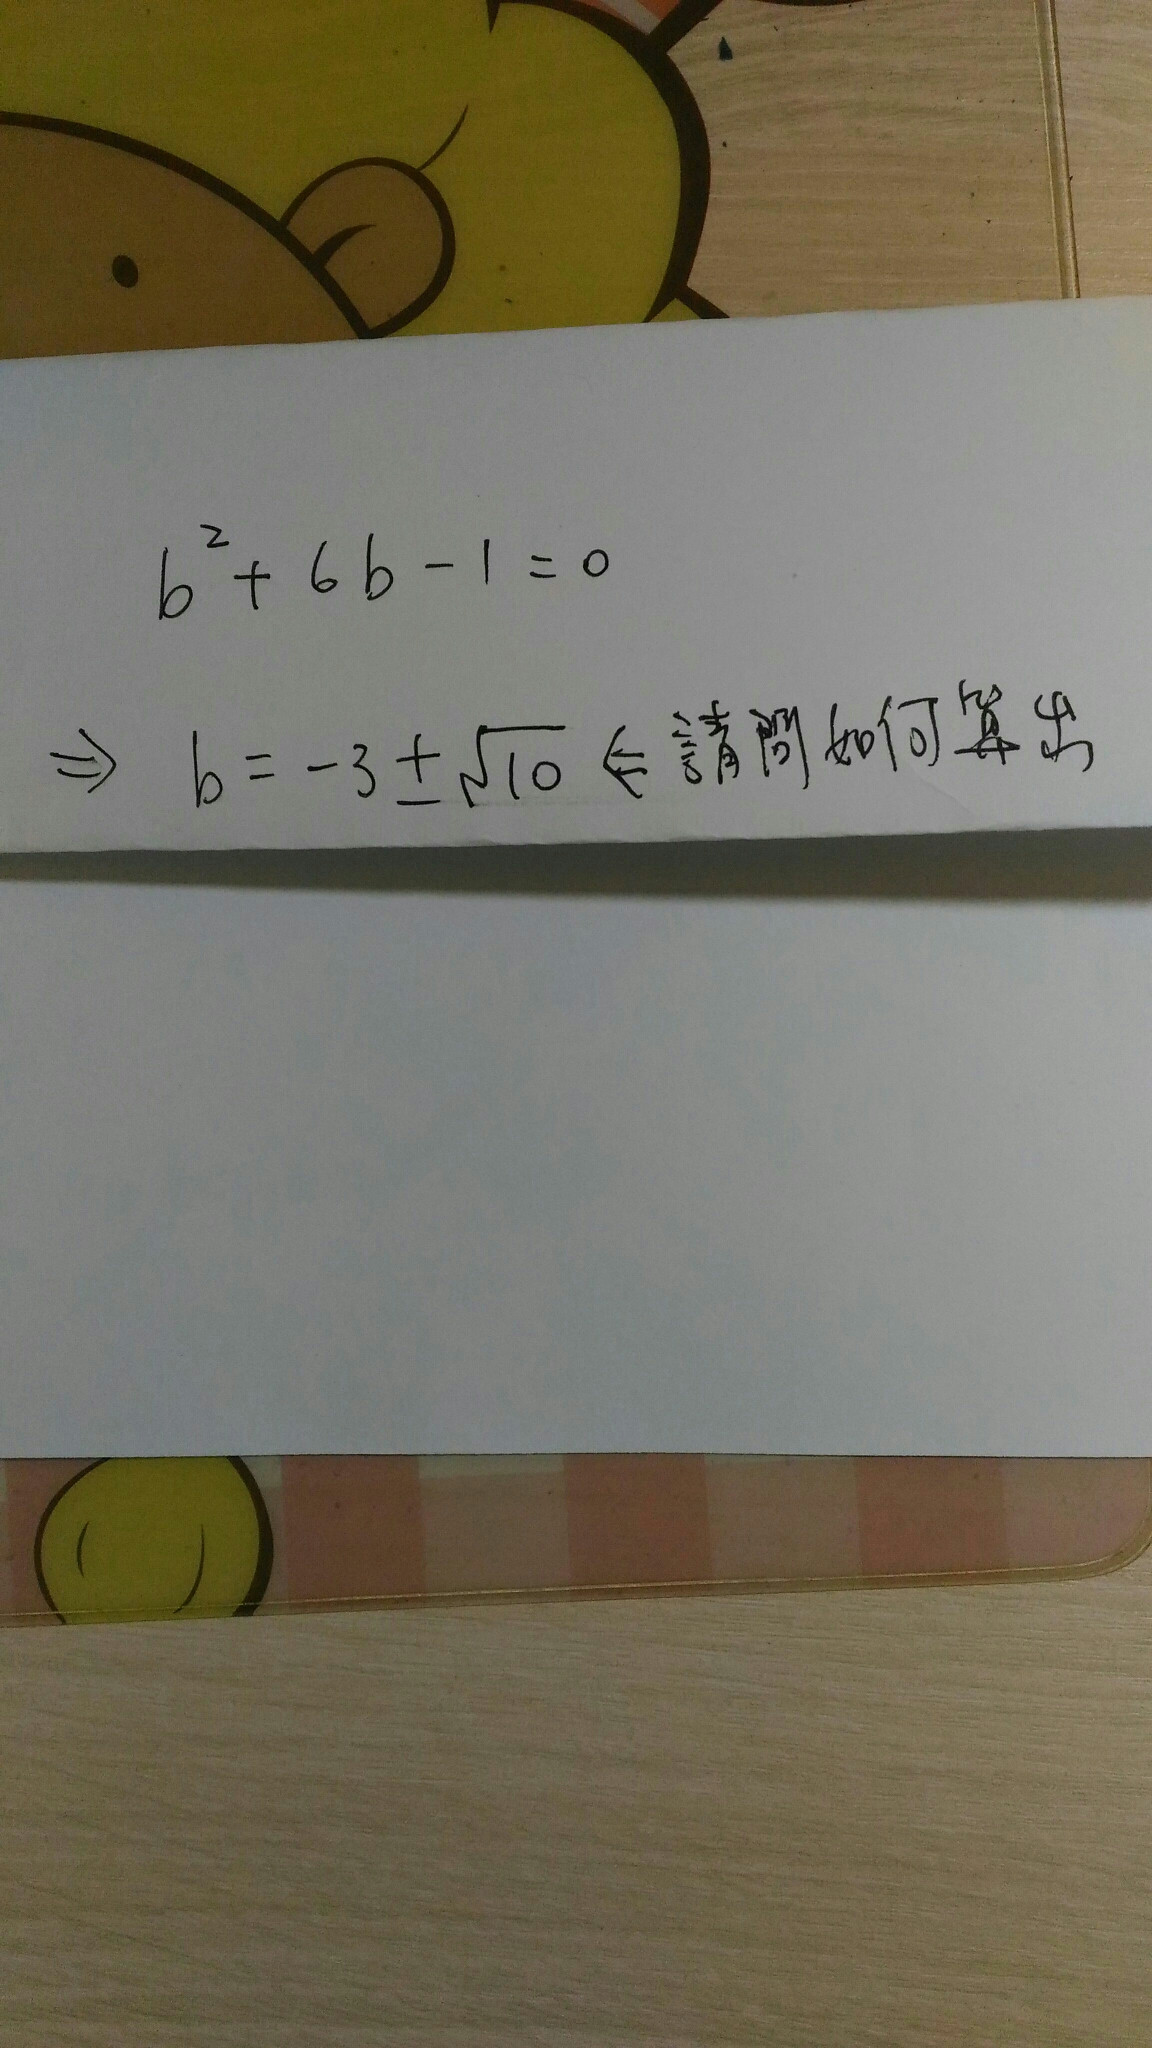 b²+6b-1=0
⇒ b=-3±√10 ⇐ 請問如何算出